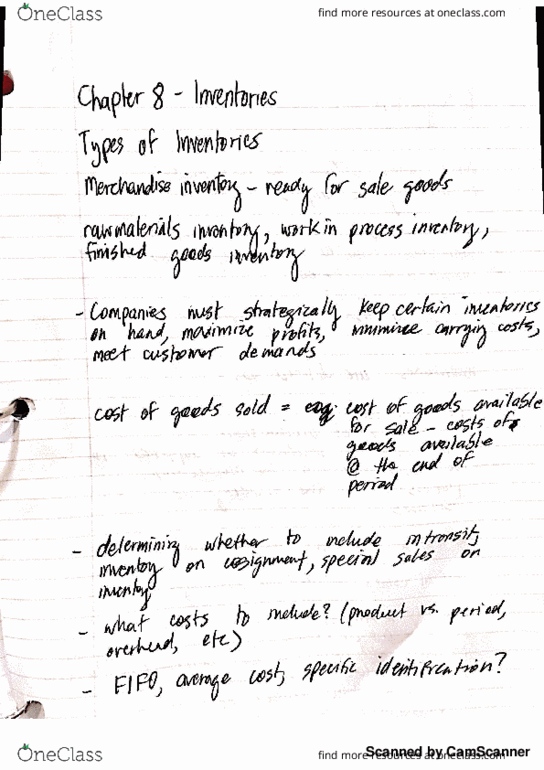 OneClass
find more resources at oneclass.com
Chapter 8 - Inventories
Types of Inventories
Merchandise inventory - ready for sale goods
raw materials inventory, work in process inventory,
finished goods inventory
- Companies must strategically keep certain inventories
on hand, maximize profits, minimize carrying costs,
meet customer demands
cost of goods sold = cost of goods available
for sale - costs of
goods available
@ the end of
period
- determining whether to include intransity
inventory on cosignment, special sales on
inventory
- what costs to include? (product vs. period,
overhead, etc)
- FIFO, average cost, specific identification?
OneClass
find more resources at oneclass.com
Scanned by CamScanner